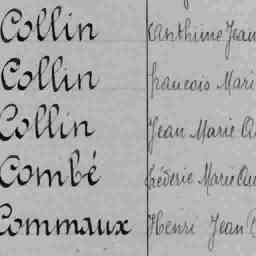 Collin Anthime Jean
Collin francois Mari
Collin Jean Marie Au
Combé fréderic Marie Au
Commaux Henri Jean